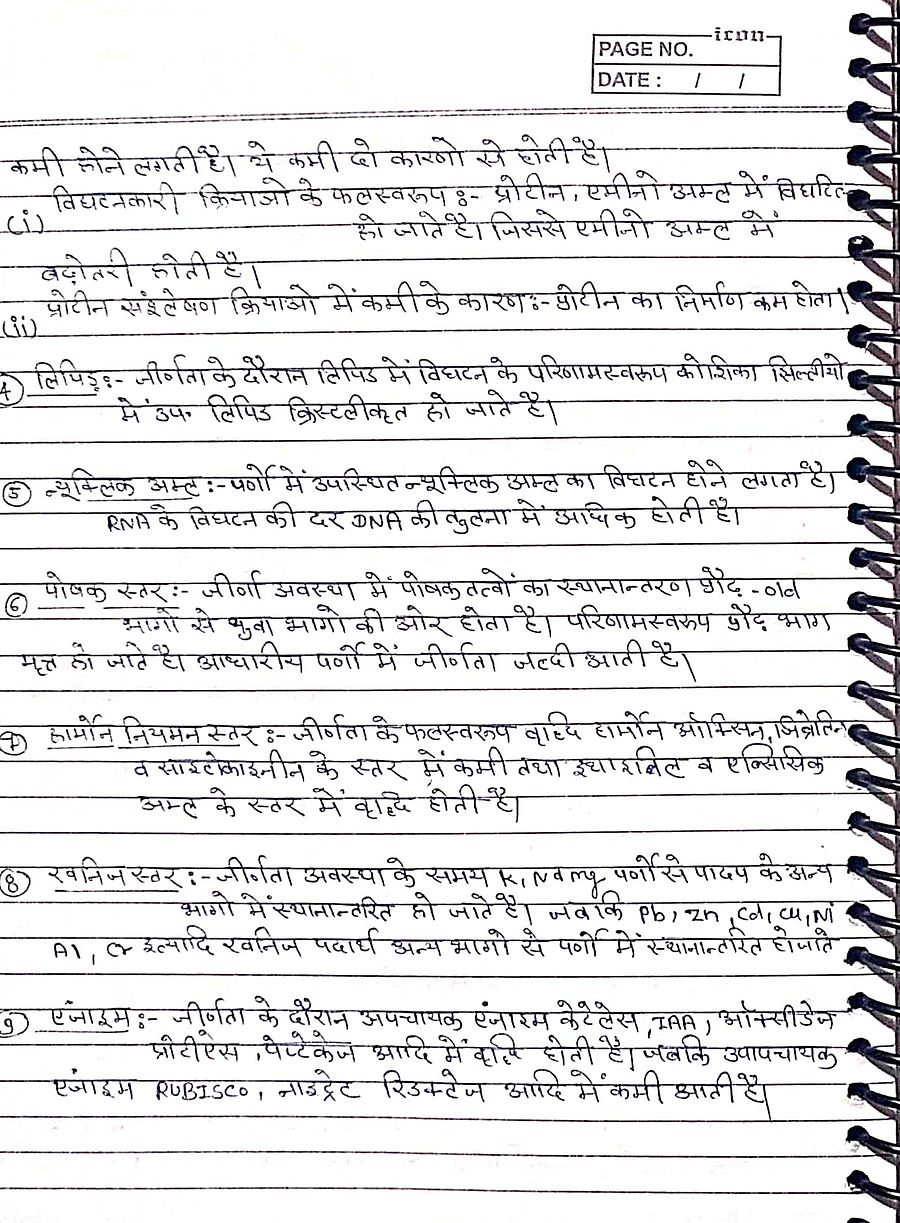 icon
PAGE NO.
DATE : / /
कमी होने लगती है। ये कमी दो कारणो से होती है।
(i) विघटनकारी क्रियाओ के फलस्वरूप :- प्रोटीन, एमीनो अम्ल में विघटित
हो जाते है। जिससे एमीनो अम्ल में
बढ़ोतरी होती है।
(ii) प्रोटीन संश्लेषण क्रियाओ में कमी के कारण :- प्रोटीन का निर्माण कम होता।
4 लिपिड :- जीर्णता के दौरान लिपिड में विघटन के परिणामस्वरूप कोशिका झिल्लीयो
में उप. लिपिड क्रिस्टलीकृत हो जाते है।
5 न्यूक्लिक अम्ल :- पर्णो में उपस्थित न्यूक्लिक अम्ल का विघटन होने लगता है।
RNA के विघटन की दर DNA की तुलना में अधिक होती है।
6 पोषक स्तर :- जीर्ण अवस्था में पोषक तत्वों का स्थानान्तरण प्रौढ़ - old
भागो से युवा भागो की ओर होता है। परिणामस्वरूप प्रौढ़ भाग
मृत हो जाते है। आधारीय पर्णो में जीर्णता जल्दी आती है।
7 हार्मोन नियमन स्तर :- जीर्णता के फलस्वरूप वृद्धि हार्मोन ऑक्सिन, जिब्रेलिन
व साइटोकाइनीन के स्तर में कमी तथा इथाइलिन व एब्सिसिक
अम्ल के स्तर में वृद्धि होती है।
8 खनिज स्तर :- जीर्णता अवस्था के समय K, N व mg पर्णो से पादप के अन्य
भागो में स्थानान्तरित हो जाते है। जबकि Pb, Zn, Cd, Cu, Ni
Al, Cr इत्यादि खनिज पदार्थ अन्य भागो से पर्णो में स्थानान्तरित हो जाते
9 एंजाइम :- जीर्णता के दौरान अपचायक एंजाइम केटेलेस, IAA, ऑक्सीडेज
प्रोटीऐस, पेप्टेकेज आदि में वृद्धि होती है। जबकि उपापचायक
एंजाइम RUBISCO, नाइट्रेट रिडक्टेज आदि में कमी आती है।